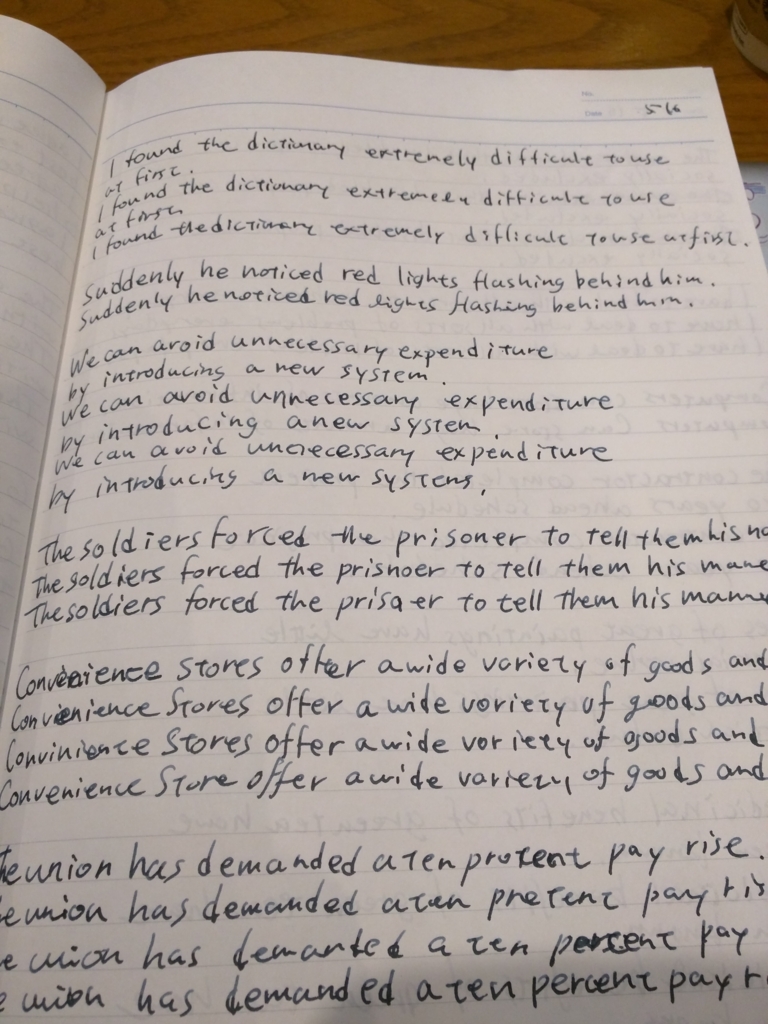 No.
Date 5/6
I found the dictionary extremely difficult to use
at first.
I found the dictionary extremely difficult to use
at first.
I found the dictionary extremely difficult to use at first.
Suddenly he noticed red lights flashing behind him.
Suddenly he noticed red lights flashing behind him.
We can avoid unnecessary expenditure
by introducing a new system.
We can avoid unnecessary expenditure
by introducing a new system.
We can avoid unnecessary expenditure
by introducing a new systems.
The soldiers forced the prisoner to tell them his na
The soldiers forced the prisnoer to tell them his mane
The soldiers forced the prisoer to tell them his mame
Convenience stores offer a wide variety of goods and
Convenience Stores offer a wide voriety of goods and
Convinience Stores offer a wide voriety of goods and
Convenience Store offer a wide variety of goods and
he union has demanded a ten protent pay rise.
e union has demanded a ten pretent pay ris
e union has demanted a ten percent pay
e union has demanded a ten percent pay r